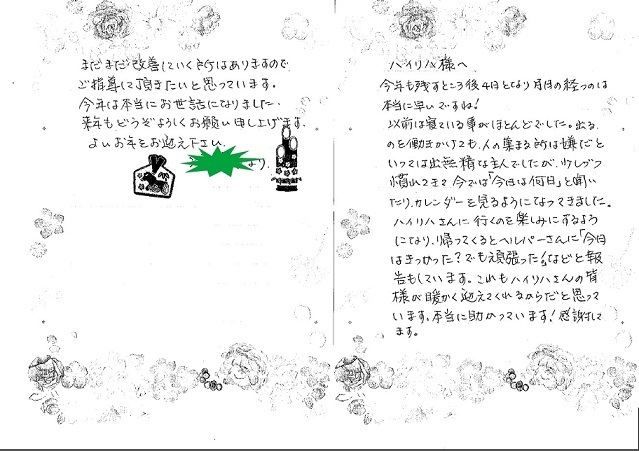 ハイリハ様へ
今年も残すところ後4日となり月日の経つのは
本当に早いですね!
以前は寝ている事がほとんどでした。出る
のを働きかけても、人の集まる所は嫌だと
いっては出無精なまんでしたが、少しづつ
慣れてきて今では「今日は何日」と聞い
たり、カレンダーを見るようになってきました。
ハイリハさんに行くのを楽しみにするよう
になり、帰ってくるとヘルパーさんに「今日
はきつかった?でも頑張った!」などと報
告もしています。これもハイリハさんの皆
様が暖かく迎えてくれるからだと思って
います。本当に助かっています!感謝して
ます。
まだまだ改善していく所はありますので
ご指導して頂きたいと思っています。
今年は本当にお世話になりました。
来年もどうぞよろしくお願い申し上げます。
よいお年をお迎え下さい
より